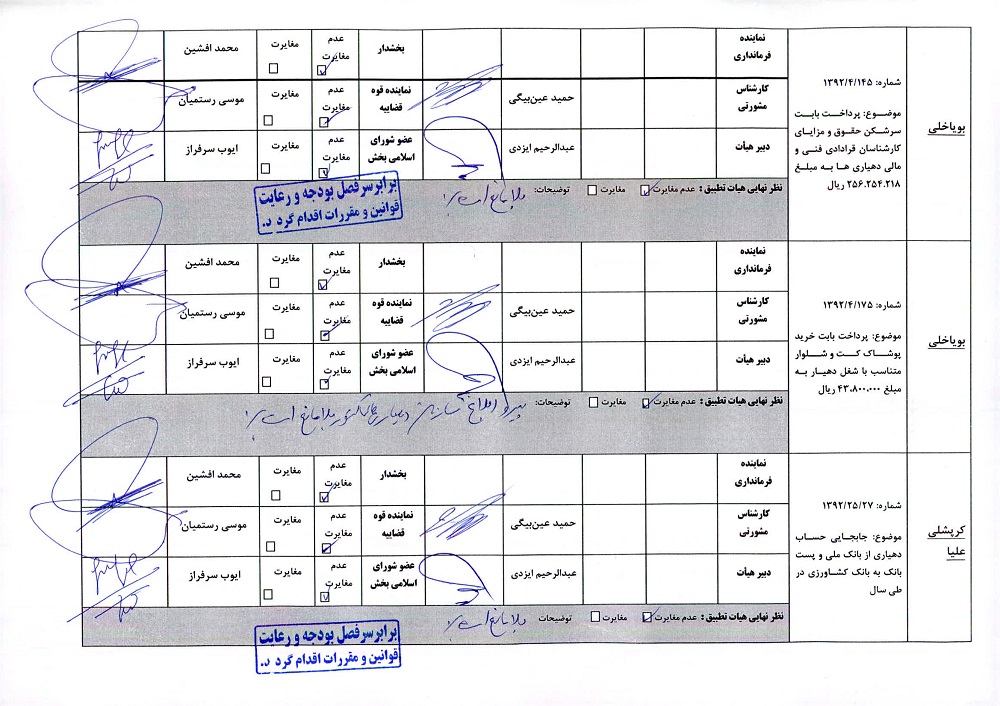 بویاخلی
شماره: ۱۳۹۲/۴/۱۴۵
موضوع: پرداخت بابت
سرشکن حقوق و مزایای
کارشناسان قرادادی فنی و
مالی دهیاری ها به مبلغ
۲۵۶.۲۵۴.۲۱۸ ریال
نماینده فرمانداری
بخشدار
عدم مغایرت
مغایرت
محمد افشین
کارشناس مشورتی
حمید عین‌بیگی
نماینده قوه قضاییه
عدم مغایرت
مغایرت
موسی رستمیان
دبیر هیأت
عبدالرحیم ایزدی
عضو شورای اسلامی بخش
عدم مغایرت
مغایرت
ایوب سرفراز
نظر نهایی هیات تطبیق: عدم مغایرت مغایرت توضیحات: بلامانع است
برابر سرفصل بودجه و رعایت
قوانین و مقررات اقدام گردد.
بویاخلی
شماره: ۱۳۹۲/۴/۱۷۵
موضوع: پرداخت بابت خرید
پوشاک کت و شلوار
متناسب با شغل دهیار به
مبلغ ۴۳،۸۰۰،۰۰۰ ریال
نماینده فرمانداری
بخشدار
عدم مغایرت
مغایرت
محمد افشین
کارشناس مشورتی
حمید عین‌بیگی
نماینده قوه قضاییه
عدم مغایرت
مغایرت
موسی رستمیان
دبیر هیأت
عبدالرحیم ایزدی
عضو شورای اسلامی بخش
عدم مغایرت
مغایرت
ایوب سرفراز
نظر نهایی هیات تطبیق: عدم مغایرت مغایرت توضیحات: پیرو ابلاغ سازمان بلامانع است
کرپشلی
علیا
شماره: ۱۳۹۲/۲۵/۲۷
موضوع: جابجایی حساب
دهیاری از بانک ملی و پست
بانک به بانک کشاورزی در
طی سال
نماینده فرمانداری
بخشدار
عدم مغایرت
مغایرت
محمد افشین
کارشناس مشورتی
حمید عین‌بیگی
نماینده قوه قضاییه
عدم مغایرت
مغایرت
موسی رستمیان
دبیر هیأت
عبدالرحیم ایزدی
عضو شورای اسلامی بخش
عدم مغایرت
مغایرت
ایوب سرفراز
نظر نهایی هیات تطبیق: عدم مغایرت مغایرت توضیحات بلامانع است
برابر سرفصل بودجه و رعایت
قوانین و مقررات اقدام گردد.